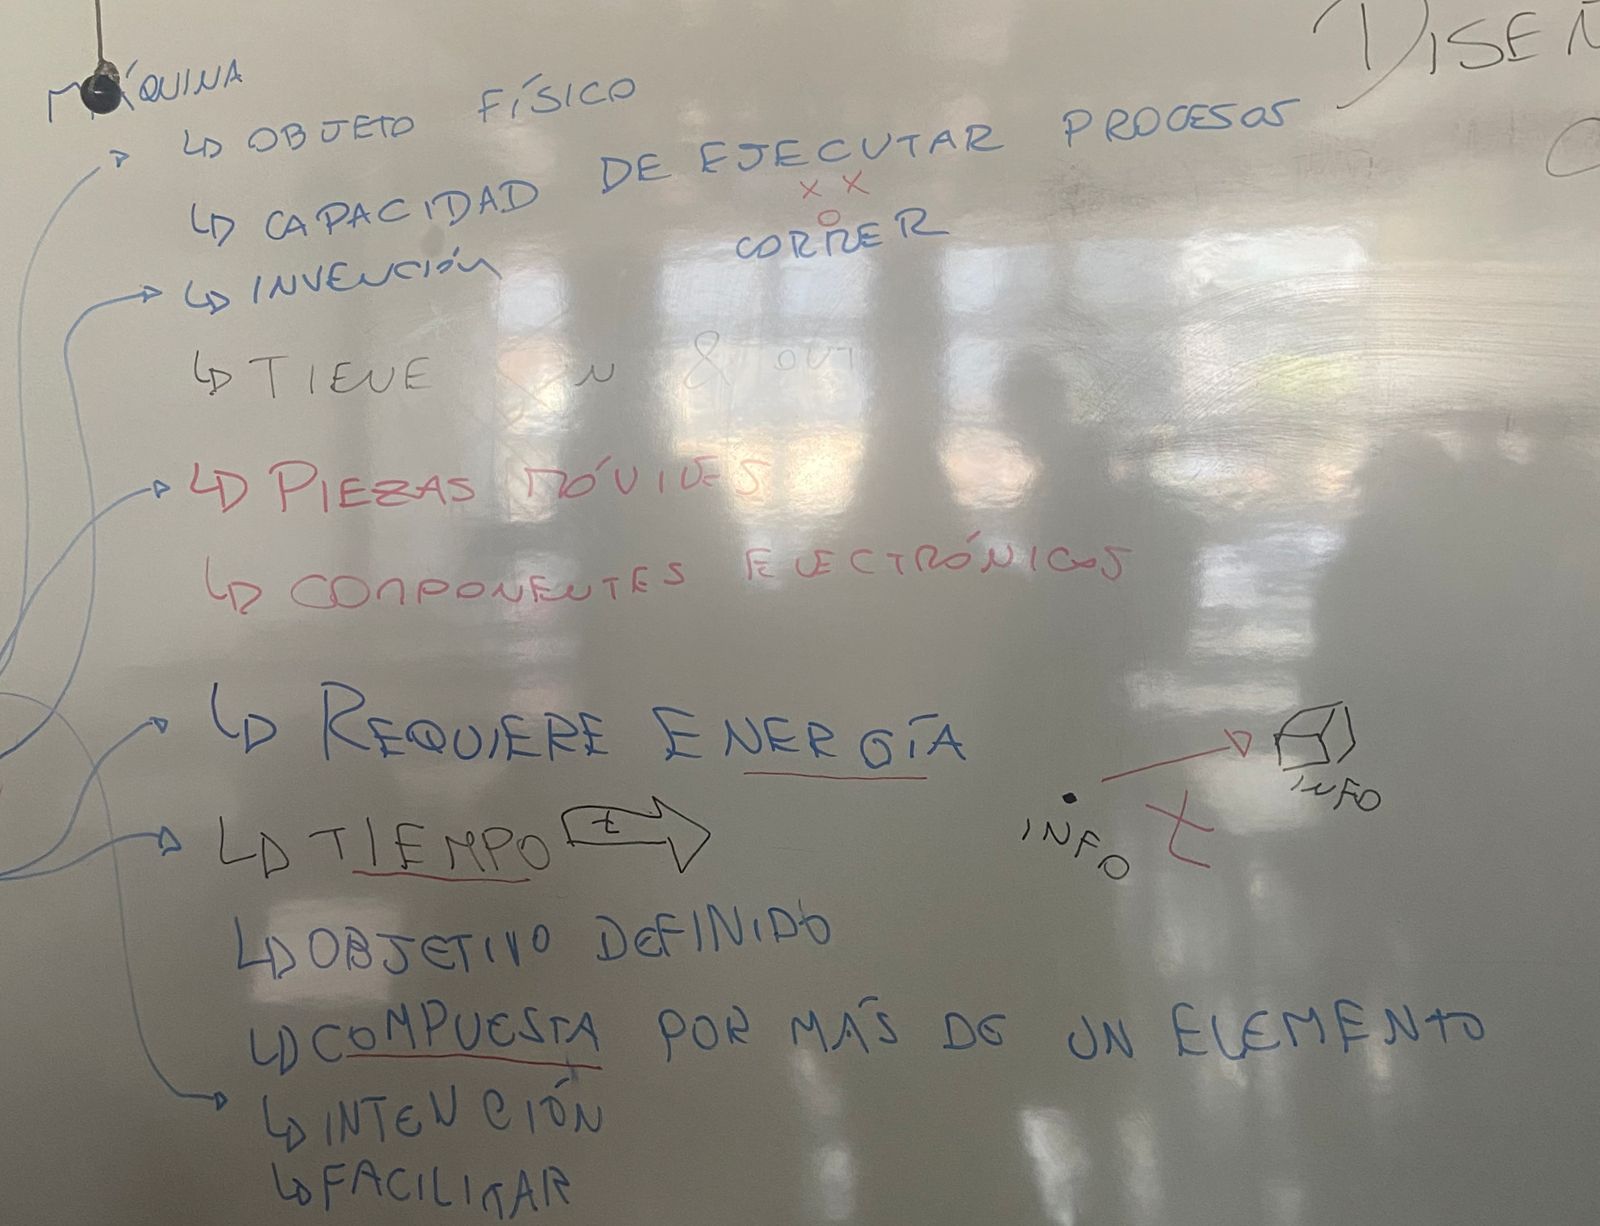 MÁQUINA
DISEÑ
↳ OBJETO FÍSICO
↳ CAPACIDAD DE EJECUTAR PROCESOS
x x
CORRER
↳ INVENCIÓN
↳ TIENE IN & OUT
↳ PIEZAS MÓVILES
↳ COMPONENTES ELECTRÓNICOS
↳ REQUIERE ENERGÍA
INFO
↳ TIEMPO t
INFO t
↳ OBJETIVO DEFINIDO
↳ COMPUESTA POR MÁS DE UN ELEMENTO
↳ INTENCIÓN
↳ FACILITAR